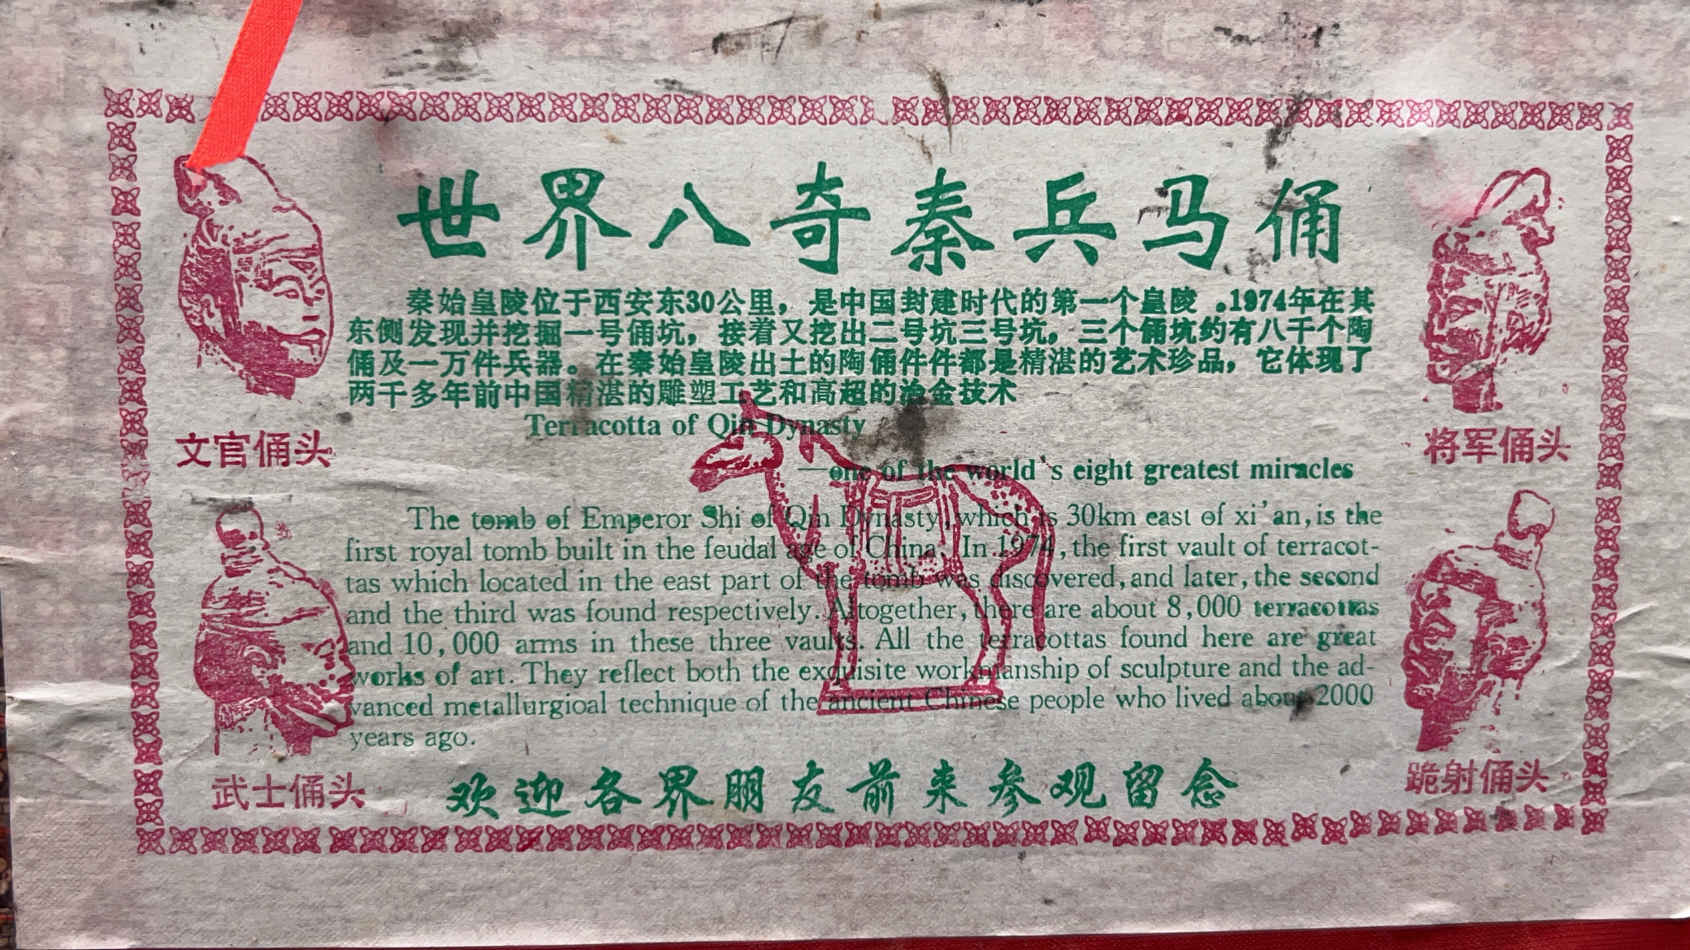 世界八奇秦兵马俑
秦始皇陵位于西安东30公里，是中国封建时代的第一个皇陵 。1974年在其
东侧发现并挖掘一号俑坑，接着又挖出二号坑三号坑，三个俑坑约有八千个陶
俑及一万件兵器。在秦始皇陵出土的陶俑件件都是精湛的艺术珍品，它体现了
两千多年前中国精湛的雕塑工艺和高超的冶金技术
Terracotta of Qin Dynasty
—one of the world's eight greatest miracles
The tomb of Emperor Shi of Qin Dynasty, which is 30km east of xi'an, is the
first royal tomb built in the feudal age of China. In 1974, the first vault of terracot-
tas which located in the east part of the tomb was discovered, and later, the second
and the third was found respectively. Altogether, there are about 8,000 terracottas
and 10,000 arms in these three vaults. All the terracottas found here are great
works of art. They reflect both the exquisite workmanship of sculpture and the ad-
vanced metallurgioal technique of the ancient Chinese people who lived about 2000
years ago.
欢迎各界朋友前来参观留念
文官俑头
武士俑头
将军俑头
跪射俑头